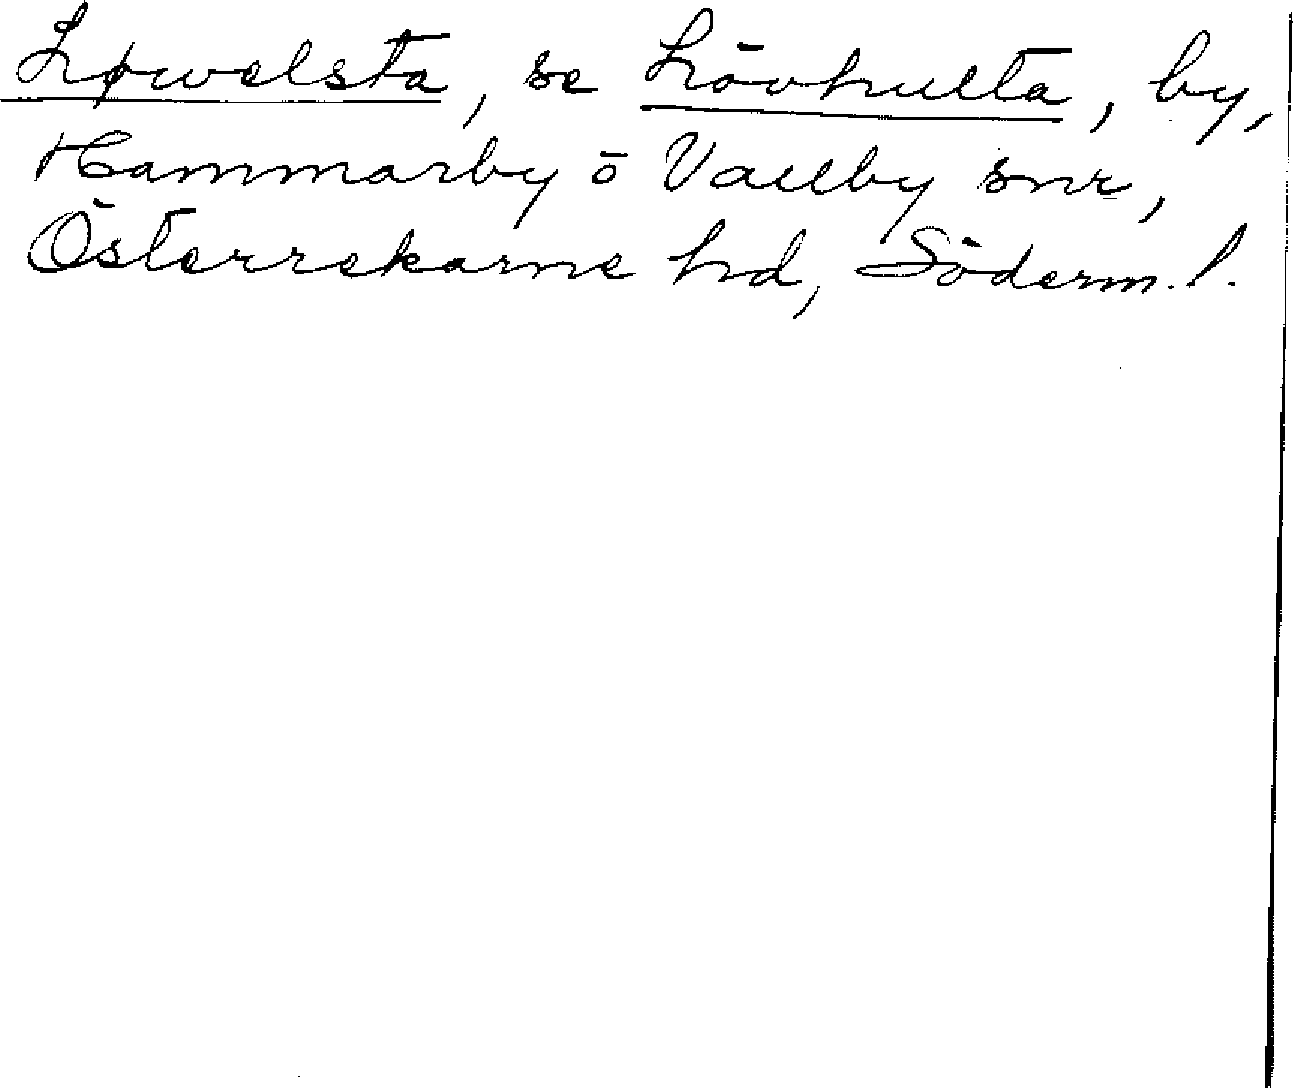 Løwelsta, se Lövhulta, by,
Hammarby o Vallby snr,
Österrekarne hd, Söderm. l.